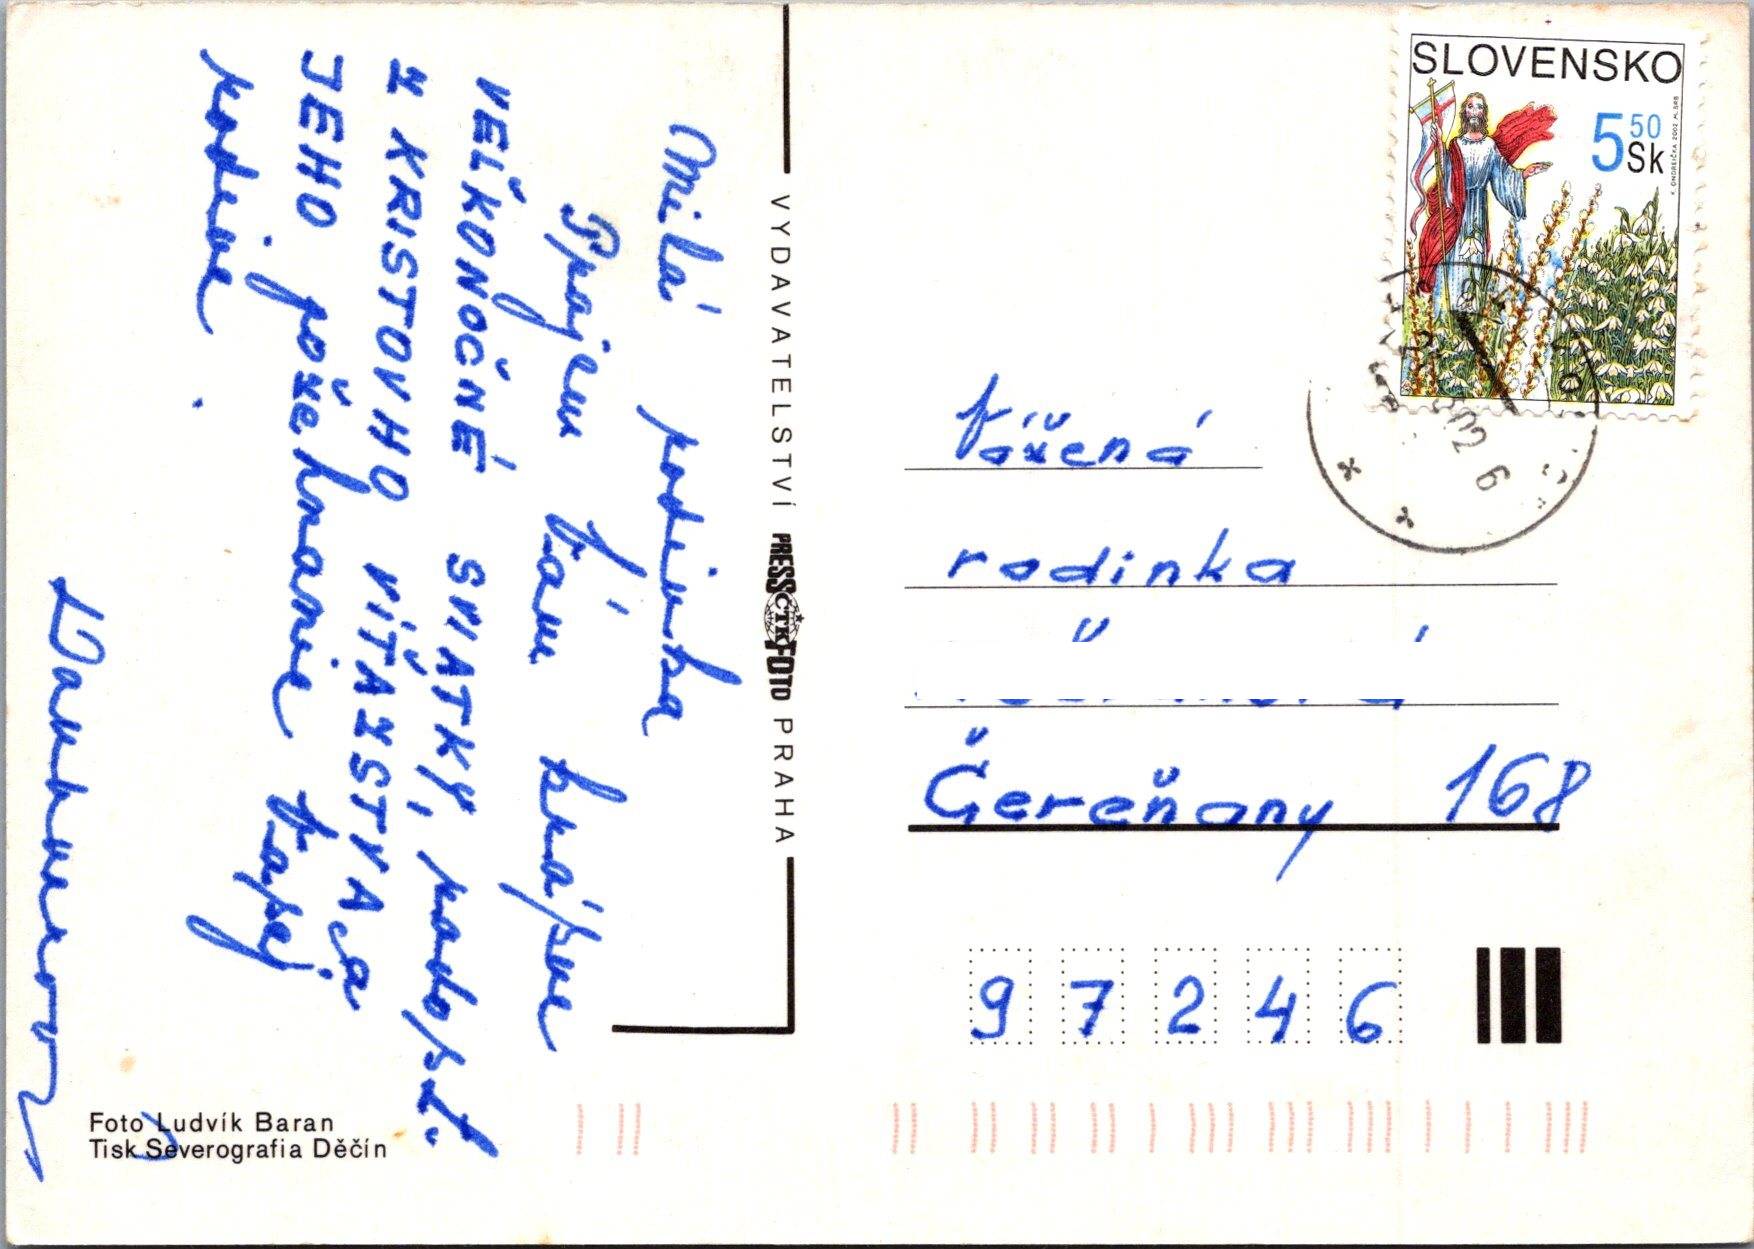 Milá rodinka
Prajem Vám krásne
VEĽKONOČNÉ SVIATKY, radosť
z KRISTOVHO VÍŤAZSTVA a
JEHO požehnanie Vašej
rodine.
VYDAVATELSTVÍ PRESSFOTO PRAHA
ČTK
Foto Ludvík Baran
Tisk Severografia Děčín
SLOVENSKO
5 50
Sk
K. ONDREIČKA 2002 M. SRB
Vážená
rodinka
Čereňany 168
97246